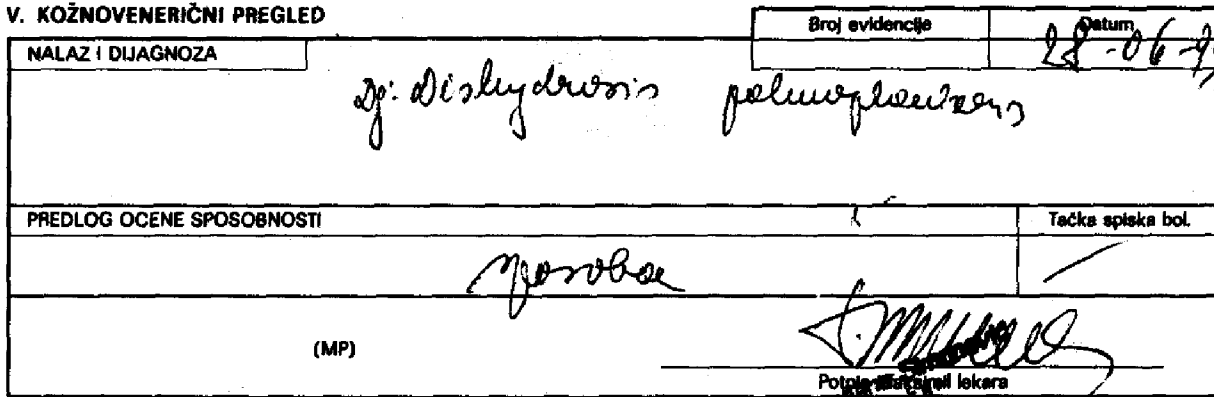 V. KOŽNOVENERIČNI PREGLED
Broj evidencije Datum
NALAZ I DIJAGNOZA
28-06-9
Dg: Dishydrosis palmoplantaris
PREDLOG OCENE SPOSOBNOSTI Tačka spiska bol.
sposoban
(MP)
lekara